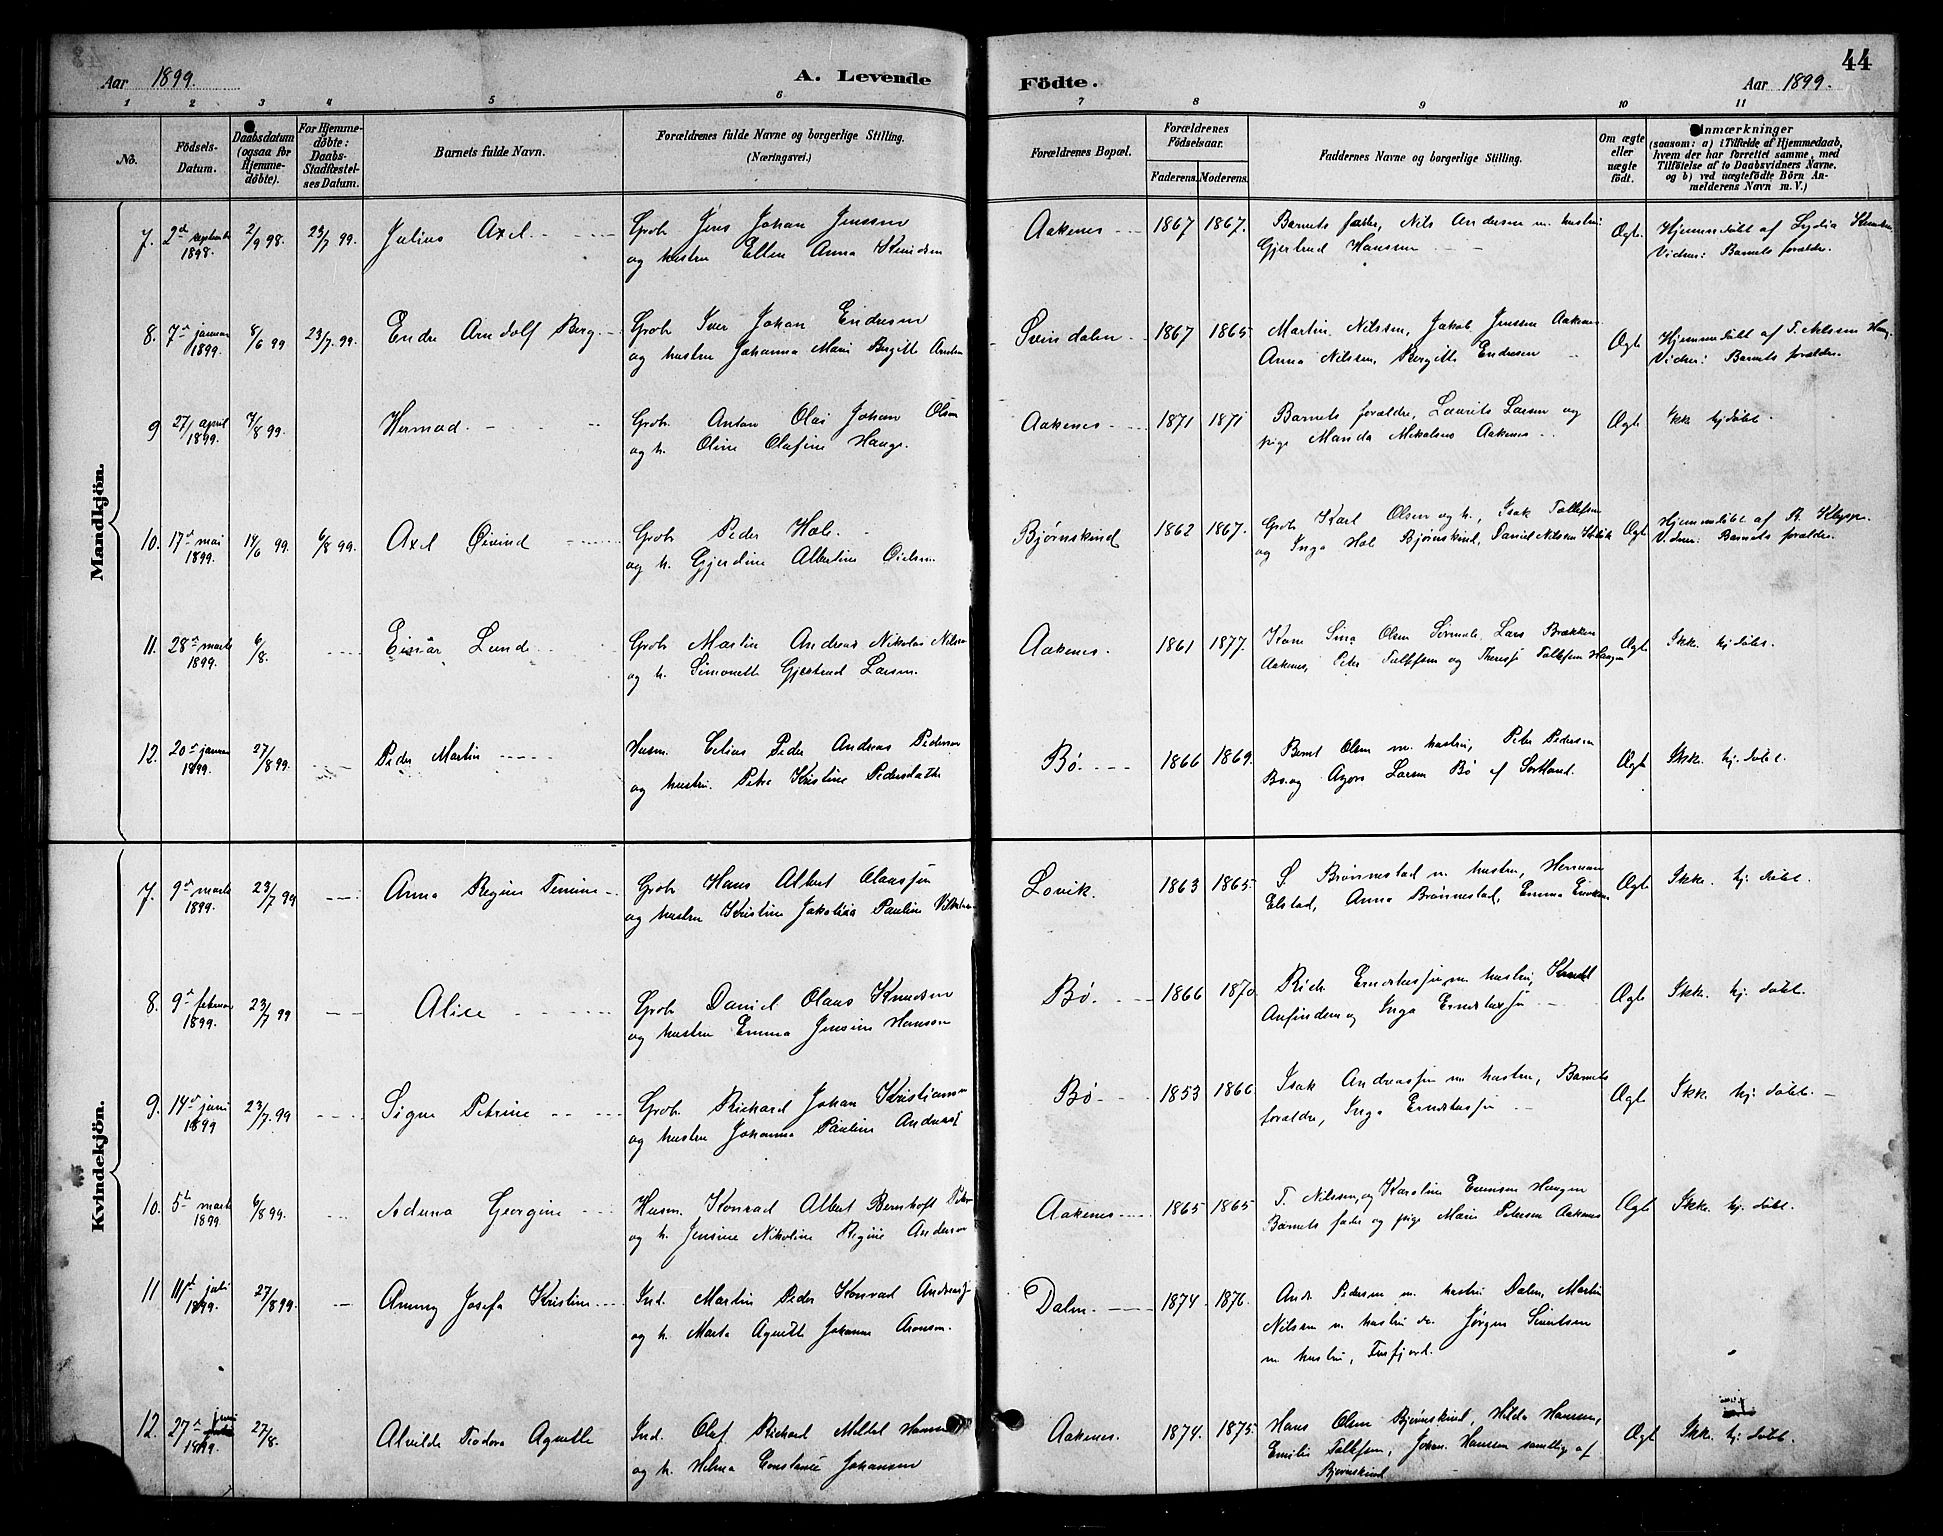 44
Aar 1899.
A. Levende
Födte.
Aar 1899.
1 2 3 4 5 6 7 8 9 10 11
No.
Födsels-
Datum.
Daabsdatum
(ogsaa for
Hjemme-
döbte).
For Hjemme-
döbte:
Daabs-
Stadfæstel-
ses Datum.
Barnets fulde Navn.
Forældrenes fulde Navne og borgerlige Stilling.
(Næringsvei.)
Forældrenes Bopæl.
Forældrenes
Födselsaar.
Faderens. Moderens.
Faddernes Navne og borgerlige Stilling.
Om ægte
eller
uægte
födt.
Anmærkninger
(saasom: a) i Tilfælde af Hjemmedaab,
hvem der har forrettet samme, med
Tilföielse af to Daabsvidners Navne,
og b) ved uægtefödte Börn An-
melderens Navn m. V.)
Mandkjön.
7. 2d september 1898. 2/9 98. 23/7 99. Julius Axel Grbr Jens Johan Jenssen
og hustru Ellen Anna Knudsen
Aakenes 1867 1867. Barnets fader, Nils Andersen m. hustru
Gjertrud Hanssen
Ægte Hjemmedøbt af Lydia
Vidner: Barnets forældre.
8. 7d januar 1899. 8/6 99 23/7 99. Endre Arndolf Berg Grbr Iver Johan Endresen
og hustru Johanna Marie Birgitte
Svindalen 1867 1865 Martin Nilssen, Jakob Jenssen Aakenes
Anna Nilssen, Bergitte Endresen
Ægte Hjemmedøbt af T. Nilssen Haug.
Vidner: Barnets forældre.
9 27/ april 1899. 7/8 99. Hermod. Grbr. Anton Olai Johan Olsen
og h. Oline Olafine Hauge.
Aakenes 1871 1871 Barnets forældre, Laurits Larsen og
pige Manda Mikalsen Aakenes
Ægte Ikke hj.døbt
10. 17d mai 1899. 14/6 99. 6/8 99. Axel Øivind Grbr Peder Hol.
og h. Gjerdine Albertine
Bjørnskind 1862 1867. Grbr Karl Olsen og h., Isak Tollefsen
og Inga Hol Bjørnskind, Daniel Nilssen
Ægte Hjemmedøbt af
Vidner: Barnets forældre.
11. 28d marts 1899. 6/8. Einar Lund Grbr Martin Andreas Nikolai Nilsen
og h. Simonette Gjertrud Larsen.
Aakenes. 1861 1877. Kone Sina Olsen Lars Brækken
Aakenes, Peter Tollefsen og Tollefsen Haugen
Ægte Ikke. hj.døbt.
12. 20d januar 1899. 27/8 99. Peder Martin Husm. Peder Andreas Pedersen
og hustru. Petra Kristine Pedersdatter
Bø. 1866 1869. Bernt Olsen m. hustru, Peter Pedersen
Bø og Larsen Bø af Sortland.
Ægte Ikke hj.døbt.
Kvindekjön.
7. 9d marts 1899. 23/7 99 Anna Regine Grbr Hans Albert Olaussen
og hustru Kristine Pauline
Lovik. 1863 1865. S Brønnestad m hustru, Herman
Elstad, Anna Brønnestad, Emma
Ægte Ikke. hj. døbt.
8. 9d februar 1899. 23/7 99 Alice Grbr Daniel Olaus Knudsen
og hustru Emma Jensine Hansen
Bø. 1866 1870 m hustru,
og Inga
Ægte Ikke. hj. døbt.
9. 14d juni 1899 23/7 99 Signe Petrine Grbr. Richard Johan Kristiansen
og hustru Johanna Pauline
Bø 1853 1866 Isak Andreassen m hustru, Barnets
forældre, Inga
Ægte Ikke. hj. døbt.
10. 5te marts 1899. 6/8 99. Georgine Husm. Konrad Albert Bernhoft
og h. Jensine Nikoline Regine Andersen
Aakenes 1865 1865 T. Nilssen, og Karoline Haugen
Barnets fader og pige Marie Petersen Aakenes
Ægte Ikke. hj. døbt.
11 11d juli 1899. 27/8 99. Anny Josefa Kristine Ind. Martin Peder Konrad
og h. Marta Agnethe Johanna Aronsen.
Dalen. 1874. 1876. Andr. Pedersen m. hustru Dalen, Martin
Nilssen m hustru do. Jørgen Sivertsen
m hustru,
12. 27d juni 1899. 27/8. Alvilde Teodora Agnethe Ind. Olaf Richard Hansen
og h. Helma Constance Johansen
Aakenes. 1874. 1875. Hans Olsen Bjørnskind, Hilda Hansen,
Emilie Tollefsen, Johan Hanssen samtlige af
Bjørnskind
Ægte Ikke. hj døbt.